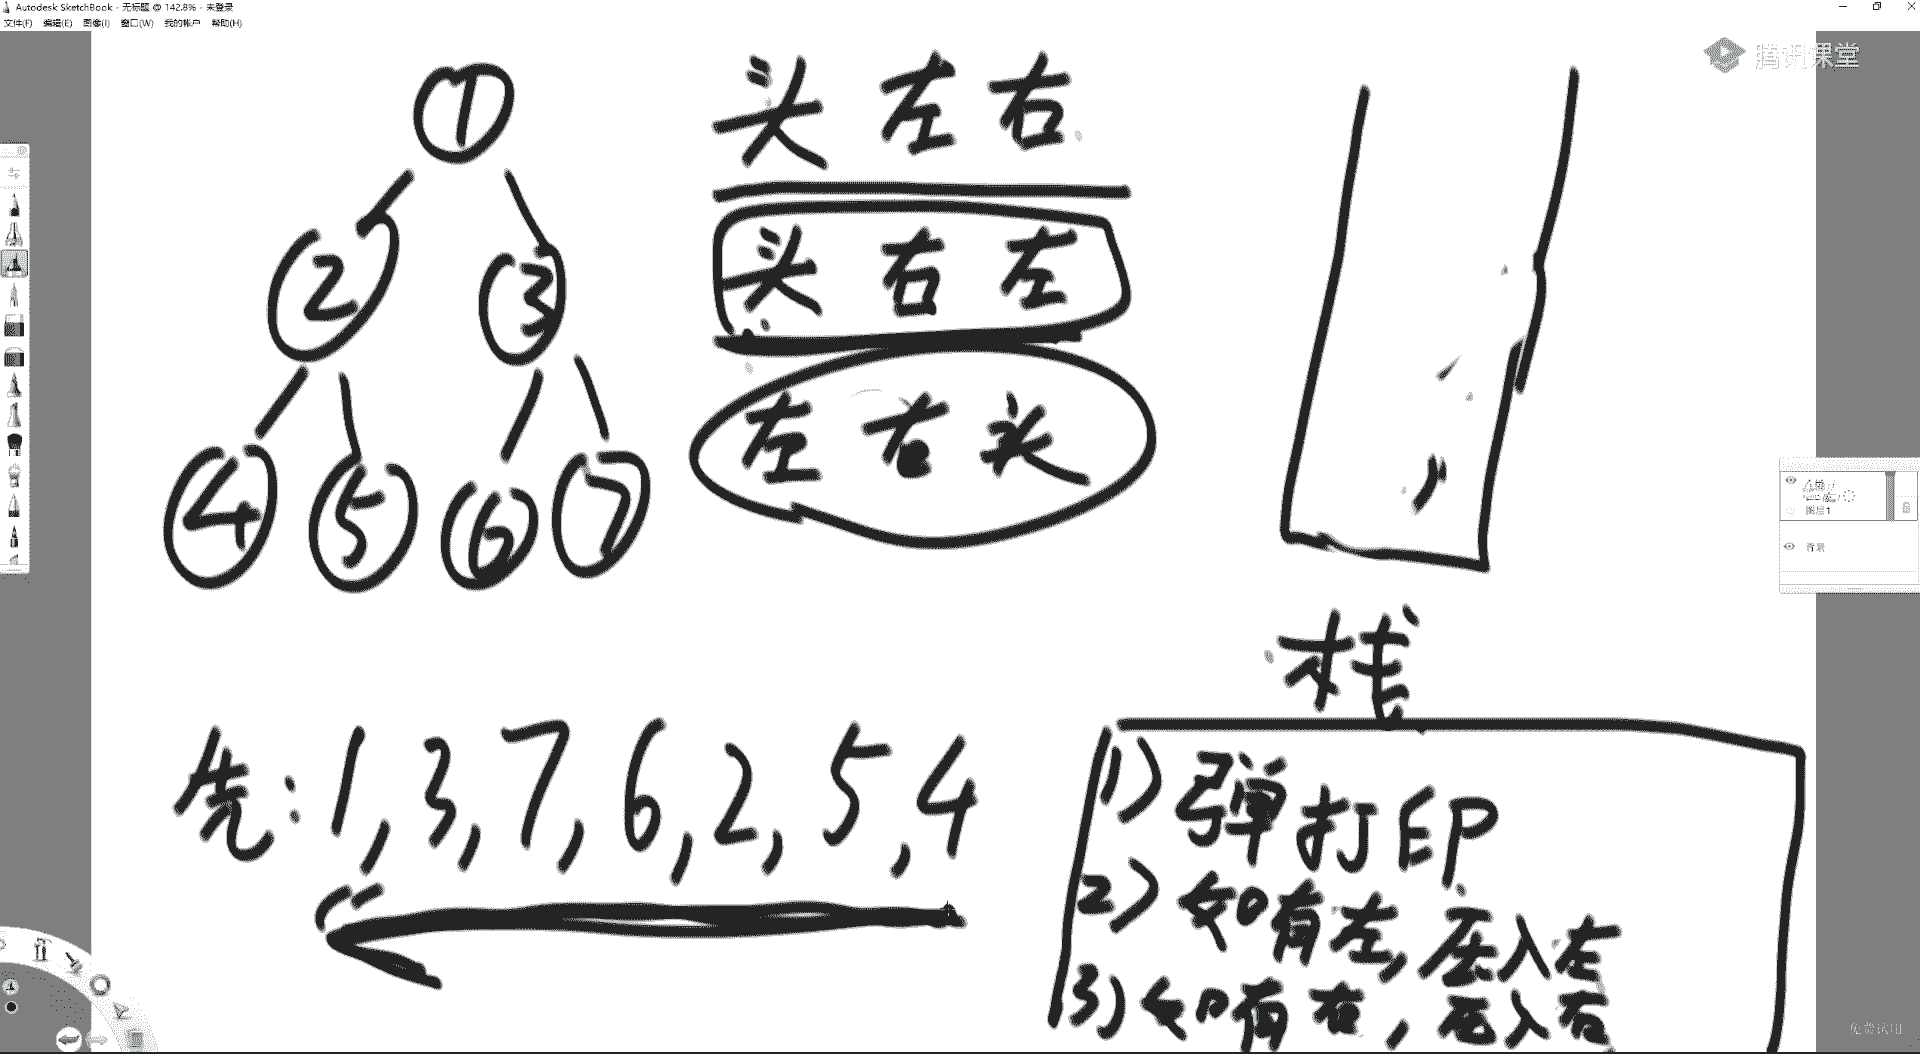 Autodesk SketchBook - 无标题 @ 142.8% - 未登录
文件(F) 编辑(E) 图像(I) 窗口(W) 我的帐户 帮助(H)
腾讯课堂
1
2 3
4 5 6 7
头 左 右
头 右 左
左 右 头
栈
先: 1, 3, 7, 6, 2, 5, 4
1) 弹打印
2) 如有左, 压入左
3) 如有右, 压入右
图层1
背景
免费试用